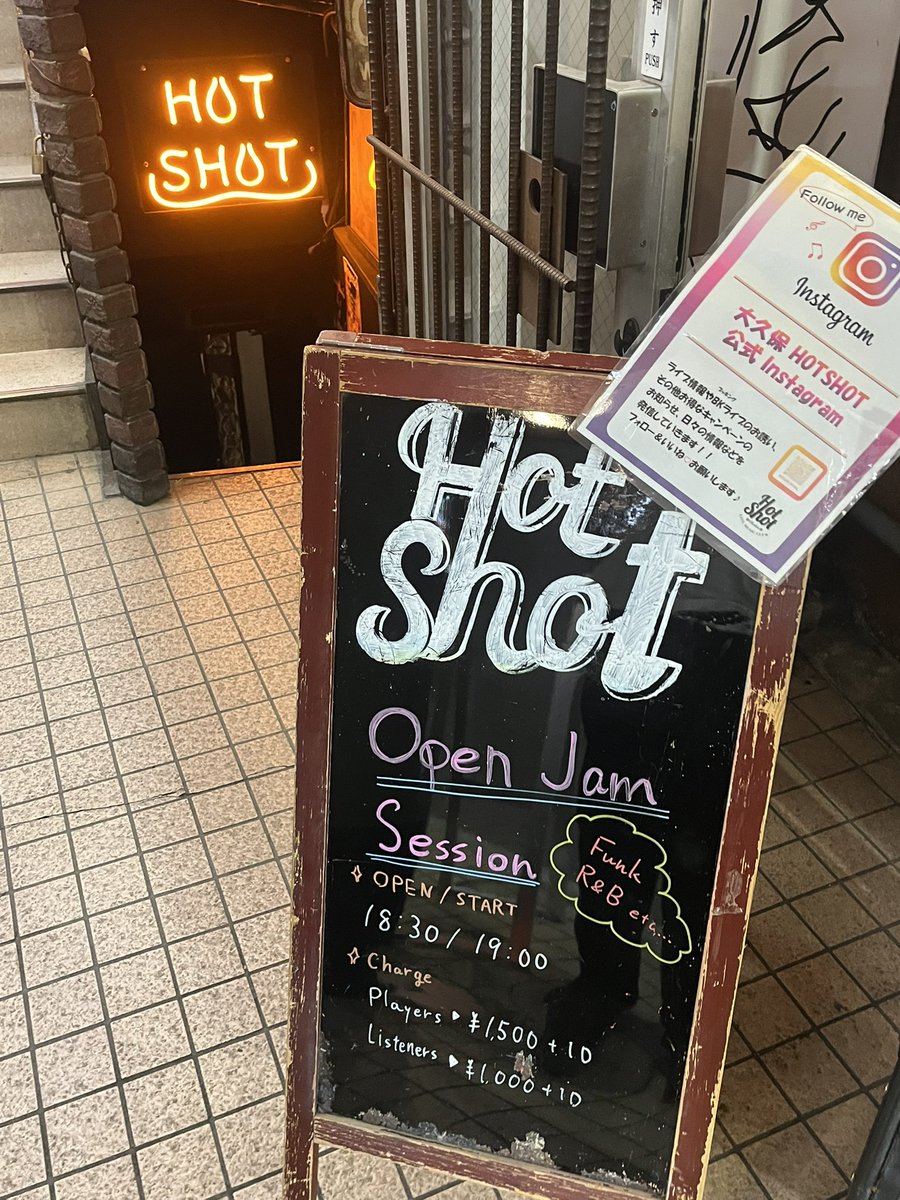 HOT
SHOT
押す
PUSH
Follow me
Instagram
大久保 HOTSHOT
公式 Instagram
ライブ情報やBKライブのお誘い、
その他お得なキャンペーンの
お知らせ、日々の情報などを
発信していきます！！
フォロー&いいね お願いします♪
Hot
Shot
Hot
Shot
Open Jam
Session
Funk
R&B etc...
✧ OPEN / START
18:30 / 19:00
✧ Charge
Players ▶ ¥1,500 + 1D
Listeners ▶ ¥1,000 + 1D